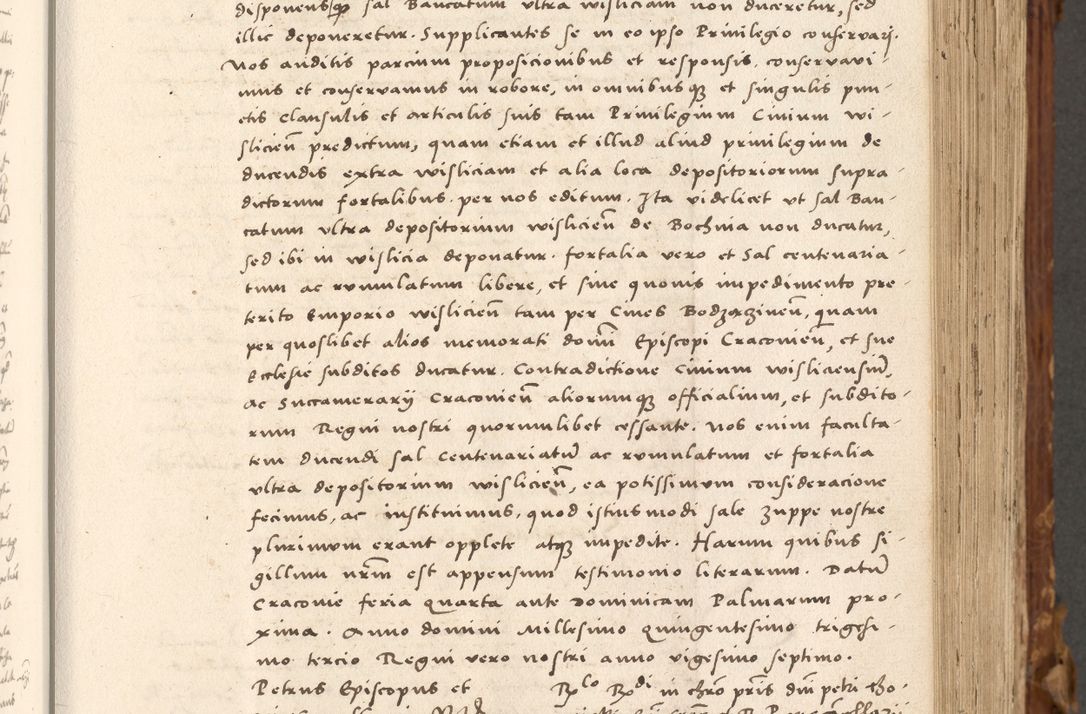 disponensqꝫ sal Bancatum ultra wisliciam non duceretur, sed
illic deponeretur. Supplicantes se in eo ipso Privilegio conservari.
Nos auditis parcium proposicionibus et responsis, conservavi-
mus et conservamus in robore, in omnibusqꝫ et singulis pun-
ctis clausulis et articulis suis tam Privilegium Civium wi-
slicień predictum, quam etiam et illud aliud privilegium de
ducendis extra wisliciam et alia loca depositoriorum supra-
dictorum fortalibus per nos editum. Ita videlicet ut sal Ban-
catum ultra depositorium wislicień de Bochnia non ducatur,
sed ibi in wislicia deponatur. fortalia vero et Sal centenaria-
tum ac rumulatum libere, et sine quovis impedimento pre-
terito Emporio wislicień tam per Cives Bodzęczineń, quam
per quoslibet alios memorati domī Episcopi Cracovień, et sue
Ecclesie subditos ducatur. Contradictione Civium wisliciensiū,
ac Succamerarij Cracovień aliorumqꝫ officialium, et subdito-
rum Regni nostri quorumlibet cessante. Nos enim faculta-
tem ducendi sal Centenariatū ac rumulatum et fortalia
ultra depositorium wislicień, ea potissimum consideracione
fecimus, ac instituimus, quod istiusmodi sale zuppe nostre
plurimum erant opplete atqꝫ impedite. Harum quibus si-
gillum nrm̄ est appensum testimonio literarum. Datū
Cracovie feria quarta ante Dominicam Palmarum pro-
xima. Anno domini Millesimo quingentesimo trigesi-
mo tercio Regni vero nostri anno vigesimo septimo.
Petrus Episcopus et
Rlo Rdi in chro pris dni petri tho-